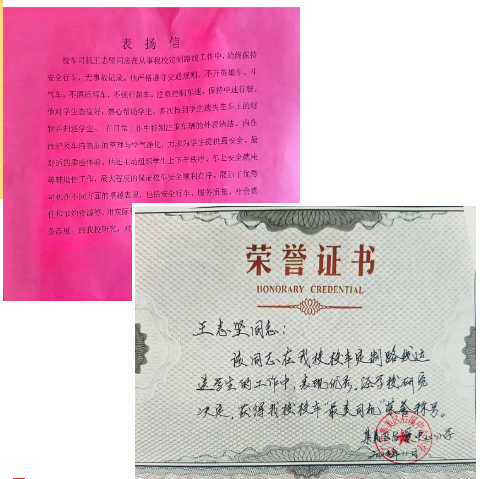 表扬信
校车司机王志坚同志在从事我校定制路线工作中,始终保持
安全行车,无事故记录。他严格遵守交通规则,不开英雄车、斗
气车,不酒后驾车,不强行超车,注意控制车速,保持中速行驶。
他对学生态度好,热心帮助学生,多次捡到学生遗失在车上的财
物并归还学生。在日常工作中特别注重车辆的外表清洁、内在
维护及车内物品的整理与空气净化,力求为学生提供最安全、最
舒适的乘座体验。他还主动组织学生上下车秩序、车上安全就座
等辅助性工作,最大程度的保证校车安全顺利有序。展示了优秀
司机在不同方面的卓越表现,包括安全行车、服务质量、社会责
任和节约资源等,用实际
务态度。经我校研究,对
荣誉证书
HONORARY CREDENTIAL
王志坚同志:
该同志在我校校车定制路线运
送学生的工作中,表现优秀,经学校研究
决定,获得我校校车“最美司机”荣誉称号。
小学